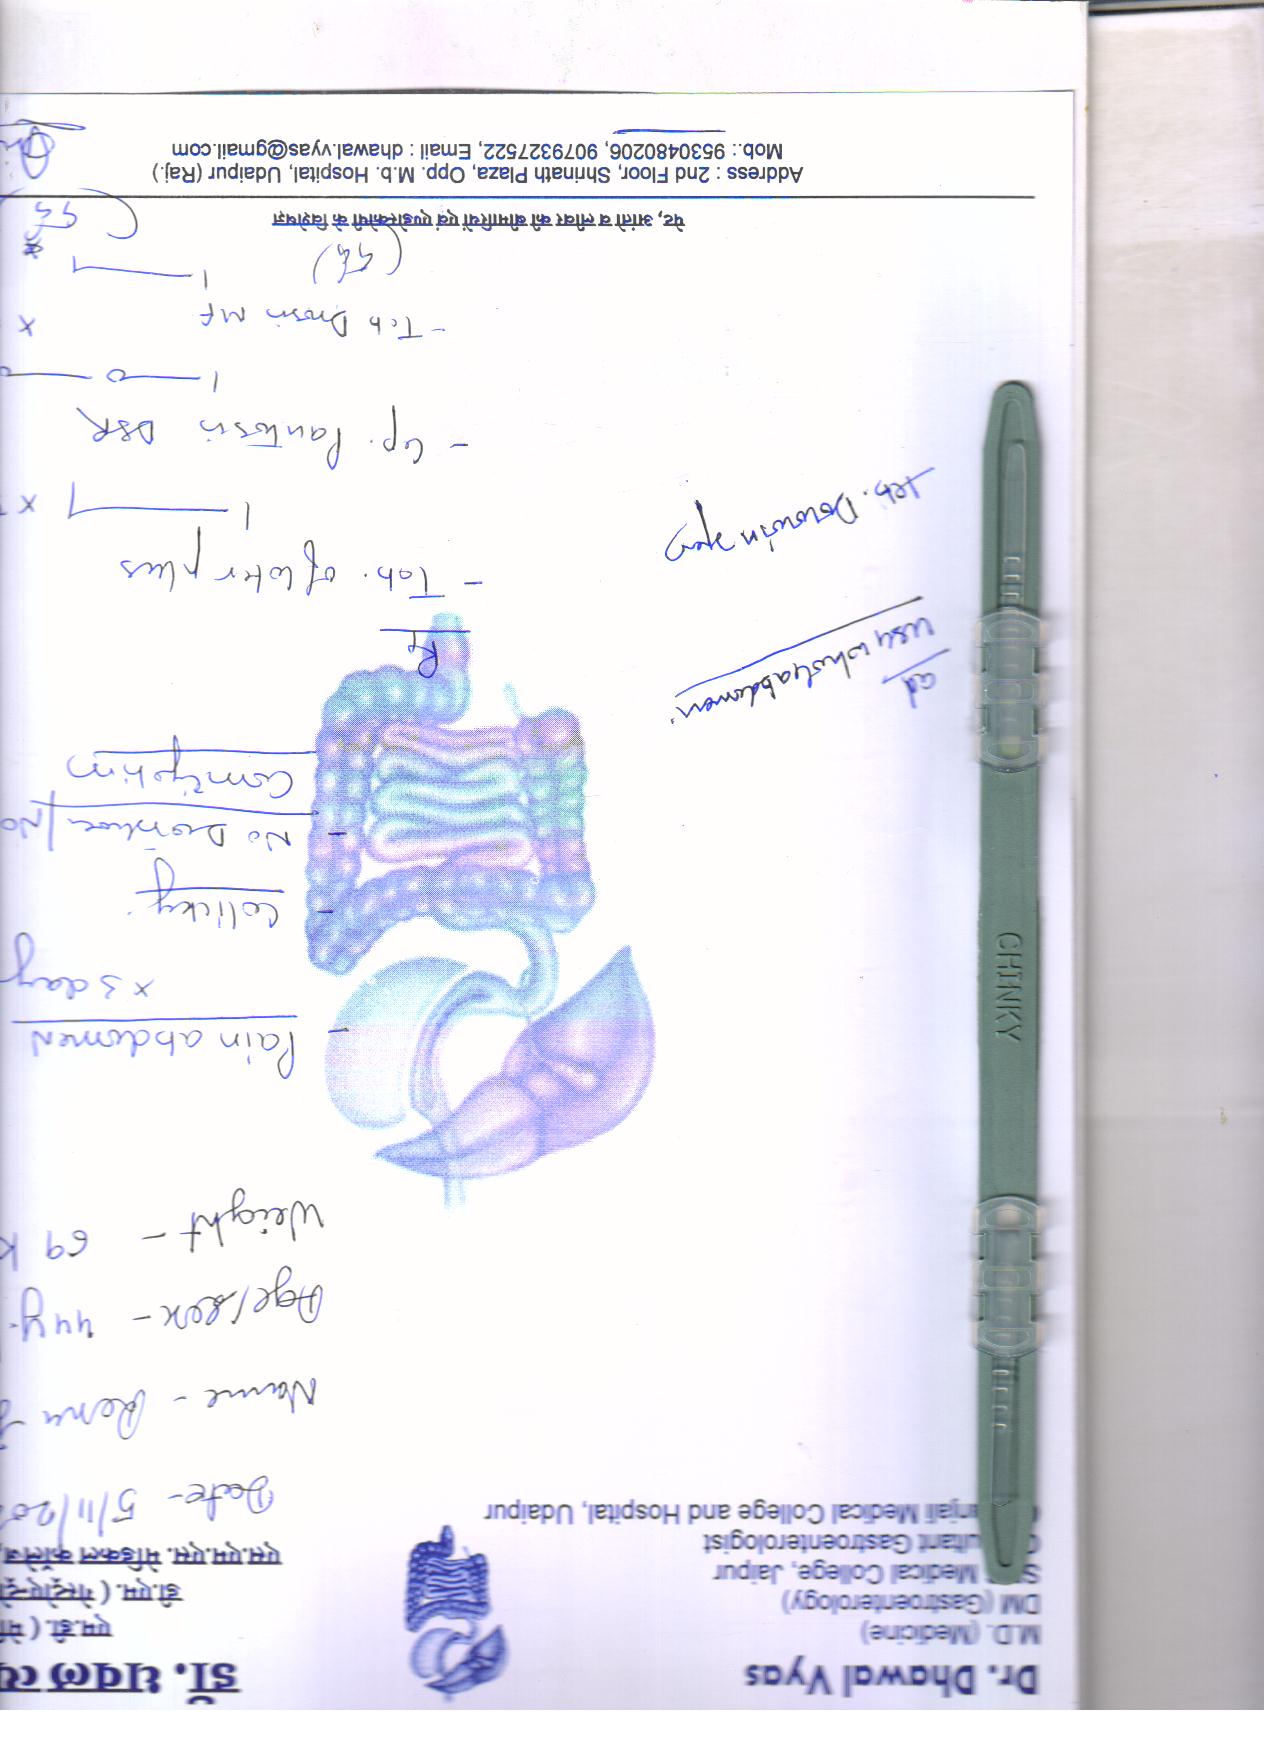 Dr. Dhawal Vyas
M.D. (Medicine)
DM (Gastroenterology)
Medical College, Jaipur
ultant Gastroenterologist
anjali Medical College and Hospital, Udaipur
डॉ. धवल व्
एम.डी. (मे
डी.एम. (गेस्ट्रोएन्ट्रो
एस.एम.एस. मेडिकल कॉलेज,
Date - 5/11/20
Name - Renu
Age/sex - 44y.
Weight - 69 K
- Pain abdomen
x 3 day
- Colicky
- No Diarrhoea / No
Constipation
Rx
Adv
USG whole abdomen
Tab.
- Tab. of loter plus
1 ——— 1 x
- Cap. Pantosin DSR
1 — 0 —
- Tab Drosin MF x
1 ——— 1
पेट, आंतो व लीवर की बीमारियों एवं एण्डोस्कोपी के विशेषज्ञ
Address : 2nd Floor, Shrinath Plaza, Opp. M.b. Hospital, Udaipur (Raj.)
Mob.: 9530480206, 9079327522, Email : dhawal.vyas@gmail.com
CHINKY